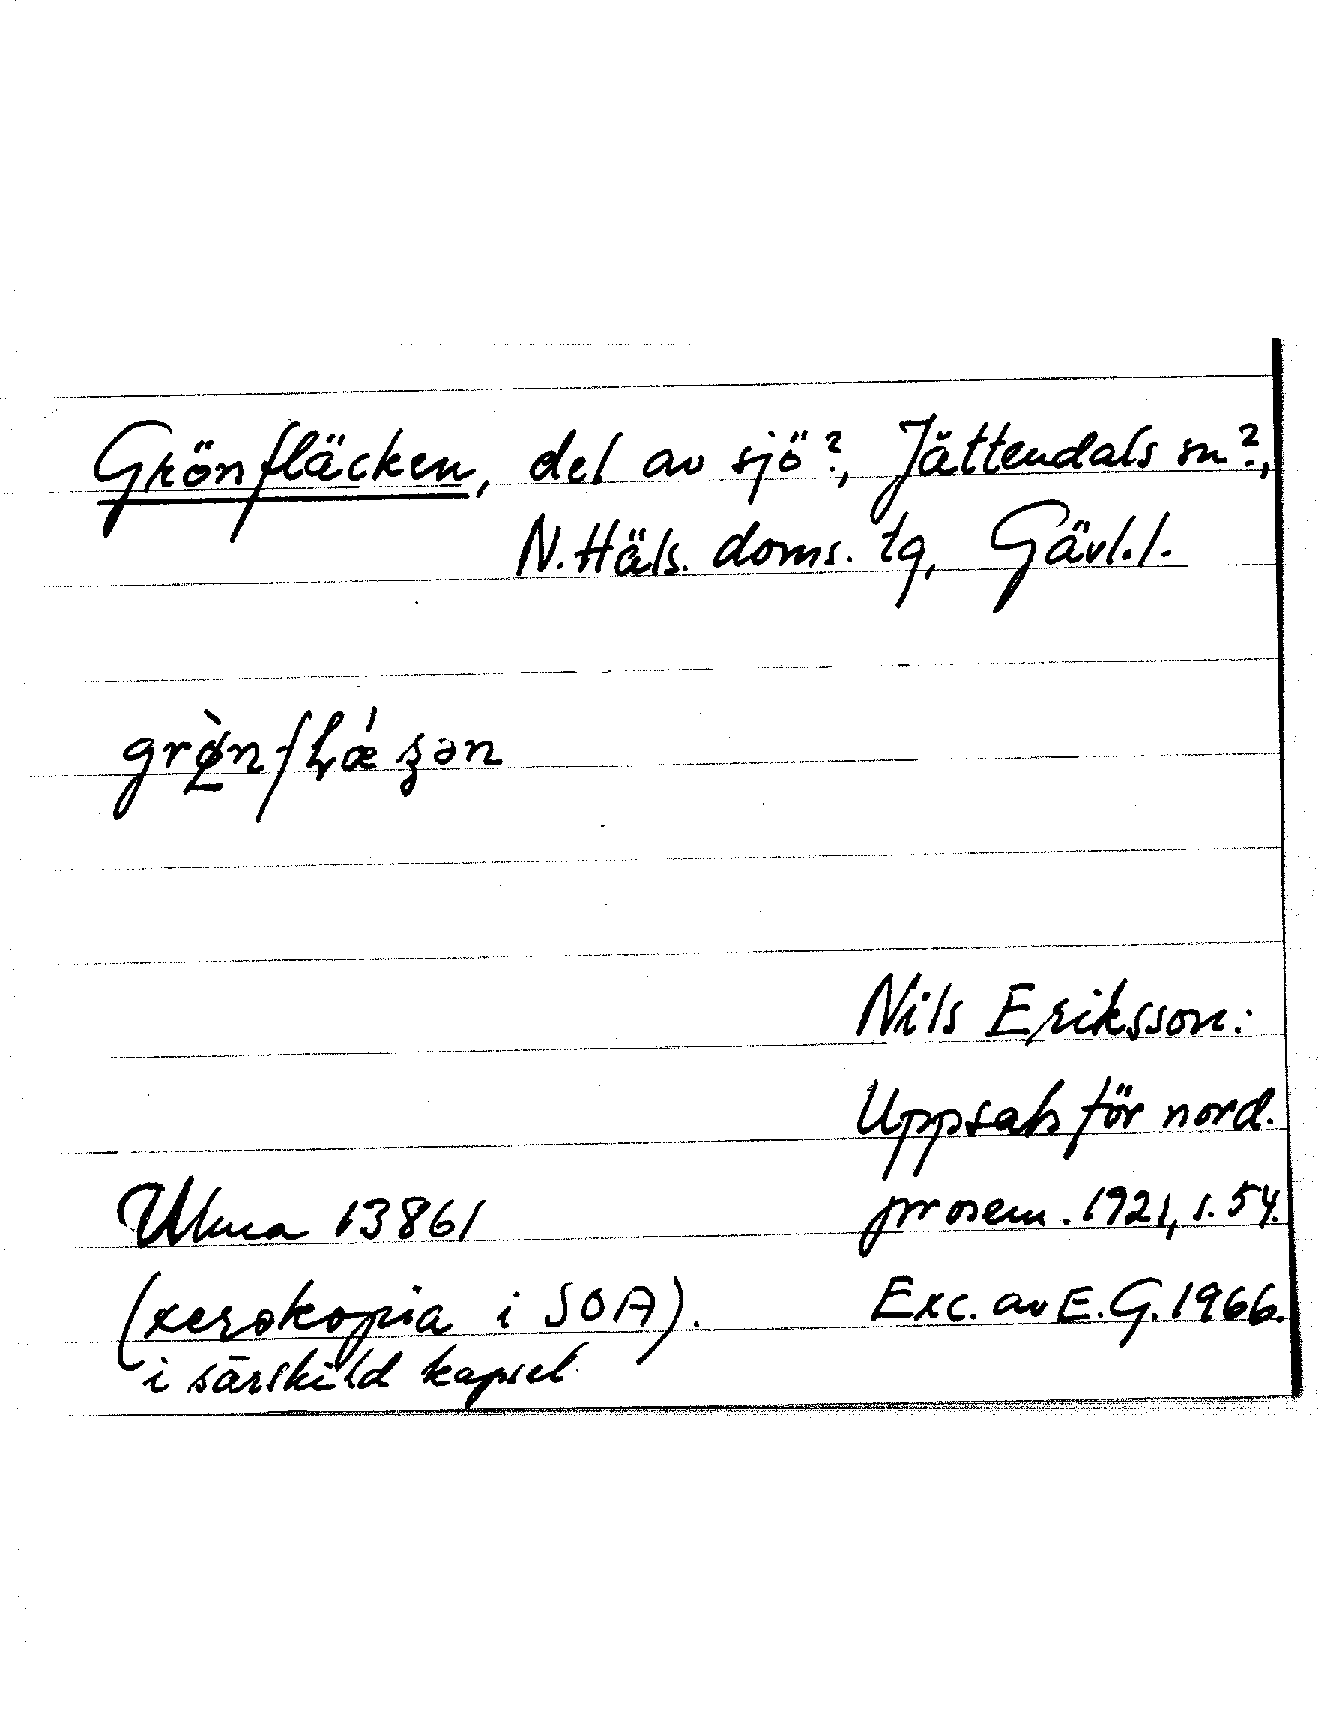 Grönfläcken, del av sjö?, Jättendals sn?,
N. Häls. doms. tg, Gävl. l.
grø̀nflǽʒən
Nils Eriksson:
Uppsats för nord.
prosem. 1921, s. 54.
Ulma 13861
(xerokopia i SOA).
Exc. av E. G. 1966.
i särskild kapsel